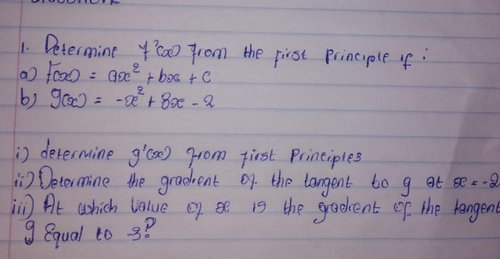 1. Determine f'(x) from the first principle if :
a) f(x) = ax² + bx + c
b) g(x) = -x² + 3x - 2
i) determine g'(x) from first principles
ii) Determine the gradient of the tangent to g at x = -2
iii) At which value of x is the gradient of the tangent
g Equal to -3?